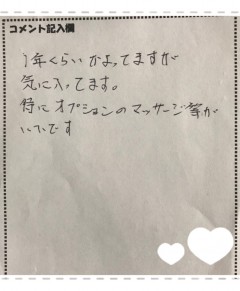 コメント記入欄
1年くらいかよってますが
気に入ってます。
特にオプションのマッサージ等が
いいです